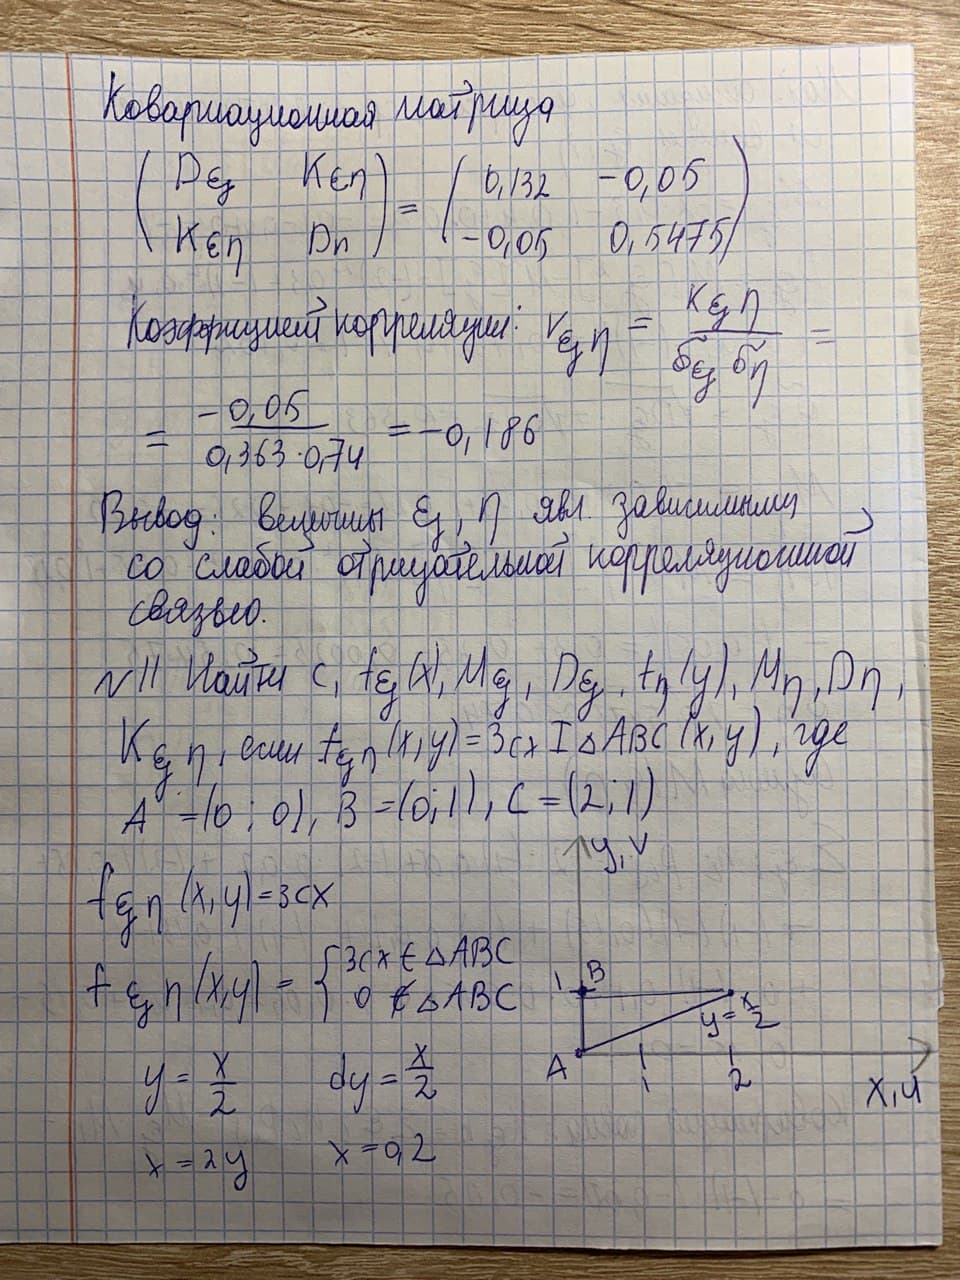 Ковариационная матрица
( Dξ Kξη ) = ( 0,132 -0,05 )
( Kξη Dη ) ( -0,05 0,5475 )
Коэффициент корреляции: rξη = Kξη / σξ ση =
= -0,05 / 0,363·0,74 = -0,186
Вывод: величины ξ, η явл. зависимыми
со слабой отрицательной корреляционной
связью.
№11 Найти c, fξ(x), Mξ, Dξ, fη(y), Mη, Dη,
Kξη, если fξη(x,y)=3cx I△ABC(x,y), где
A =(0;0), B =(0;1), C =(2;1)
y,v
fξη(x,y)=3cx
fξη(x,y) = { 3cx ∈ △ABC
0 ∉ △ABC
1 B
y = x/2
A 1 2
x,u
y = x/2 dy = x/2
x = 2y x = 0,2